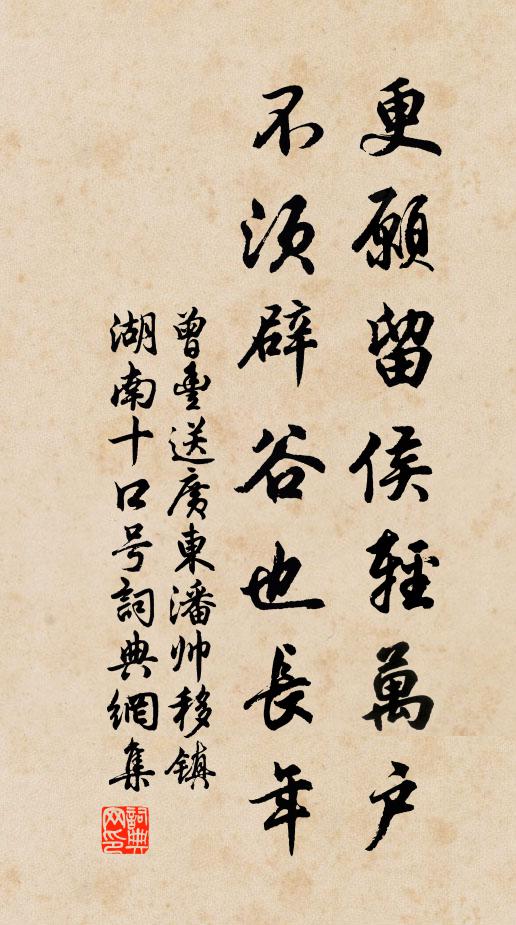 更願留侯輕萬户
不須辟谷也長年
曾豊送廣東潘帅移鎮
湖南十口号詞典網集
詞典网印